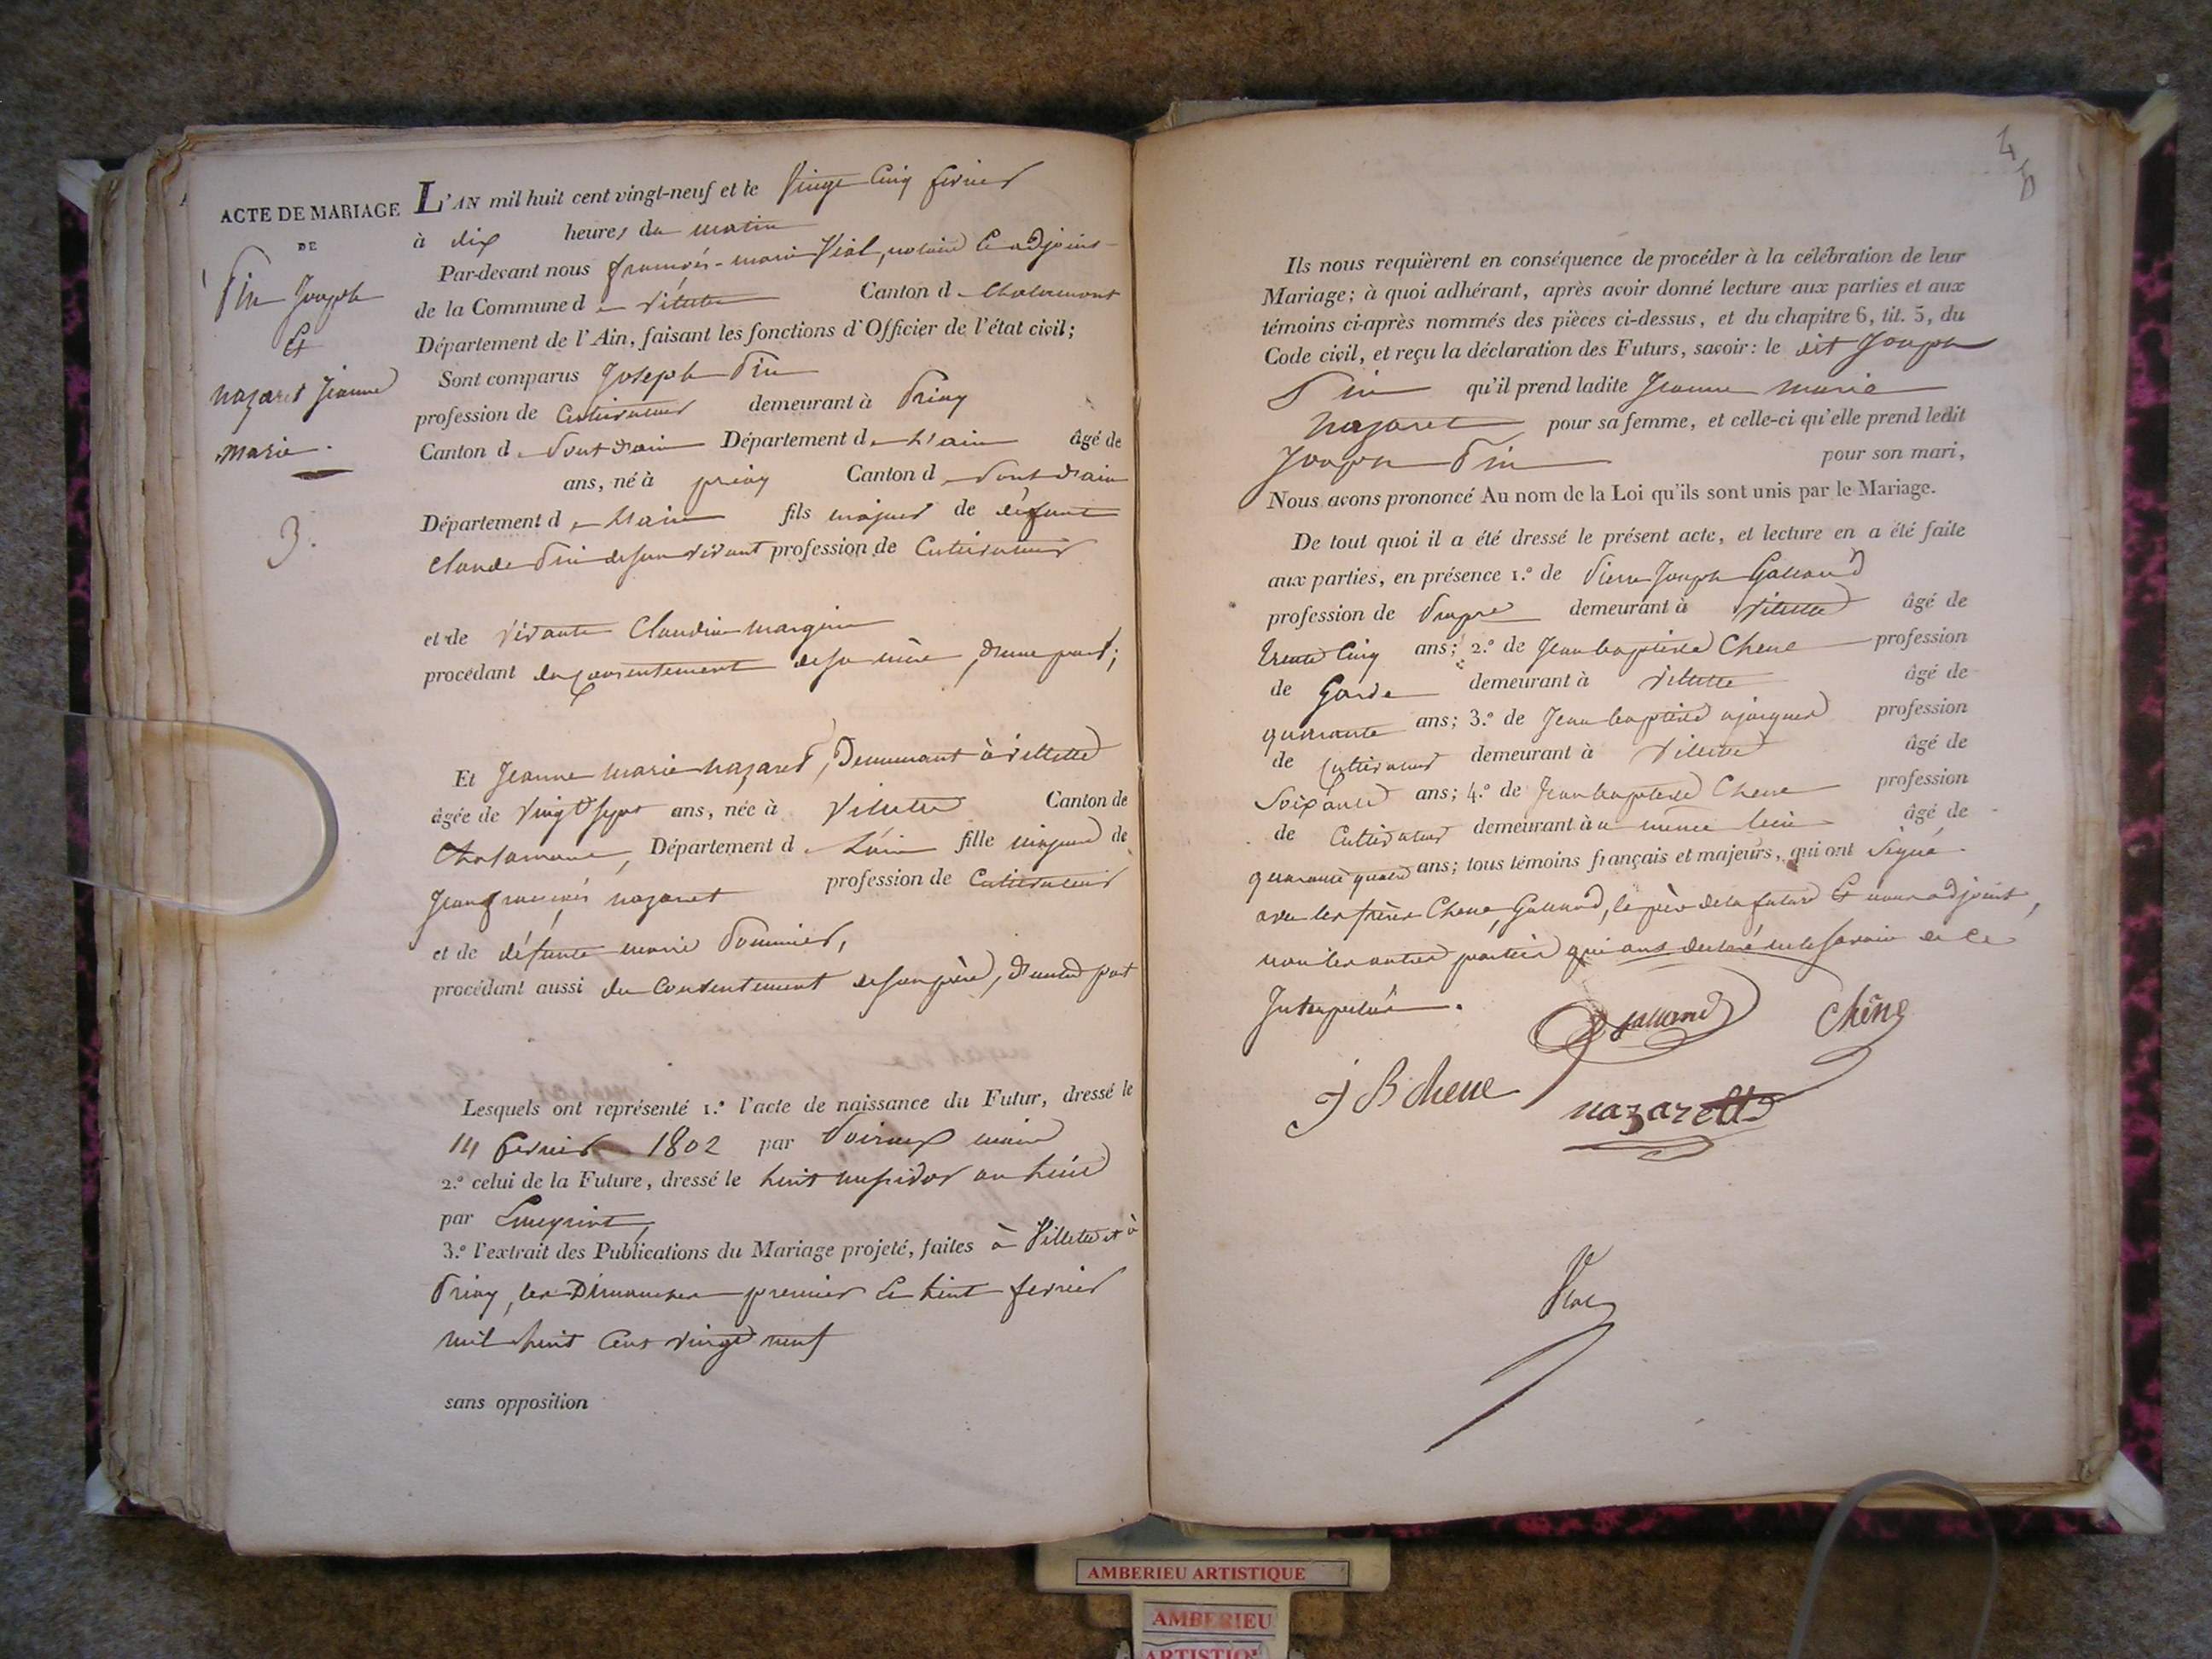 ACTE DE MARIAGE
DE
Pin Joseph
Et
nazaret Jeanne
marie.
3.
L'AN mil huit cent vingt-neuf et le Vingt Cinq fevrier
à dix heures du matin
Par-devant nous françois-marie Vial, notaire Et adjoint
de la Commune de Villette Canton de Chalamont
Département de l'Ain, faisant les fonctions d'Officier de l'état civil;
Sont comparus Joseph Pin
profession de Cultivateur demeurant à Priay
Canton de Pont d'ain Département de L'ain âgé de
ans, né à priay Canton de Pont d'ain
Département de L'ain fils majeur de défunt
Claude Pin de son vivant profession de Cultivateur
et de vivante Claudine
procédant du Consentement de sa mère, d'une part;
Et Jeanne marie nazaret, Demeurant à villette
âgée de vingt sept ans, née à Villette Canton de
Chalamont, Département de L'ain fille majeure de
Jean françois nazaret profession de Cultivateur
et de défunte marie Pommier,
procédant aussi du Consentement de son père, d'autre part
Lesquels ont représenté 1.º l'acte de naissance du Futur, dressé le
fevrier 1802 par maire
2.º celui de la Future, dressé le huit messidor an huit
par
3.º l'extrait des Publications du Mariage projeté, faites à Villette et à
Priay, les Dimanches premier Et huit fevrier
mil huit Cent vingt neuf
sans opposition
Ils nous requièrent en conséquence de procéder à la célébration de leur
Mariage; à quoi adhérant, après avoir donné lecture aux parties et aux
témoins ci-après nommés des pièces ci-dessus, et du chapitre 6, tit. 5, du
Code civil, et reçu la déclaration des Futurs, savoir: le dit Joseph
Pin qu'il prend ladite Jeanne marie
Nazaret pour sa femme, et celle-ci qu'elle prend ledit
Joseph Pin pour son mari,
Nous avons prononcé Au nom de la Loi qu'ils sont unis par le Mariage.
De tout quoi il a été dressé le présent acte, et lecture en a été faite
aux parties, en présence 1.º de Pierre Joseph Galland
profession de demeurant à Villette âgé de
trente Cinq ans; 2.º de Jean baptiste Chene profession
de Garde demeurant à Villette âgé de
quarante ans; 3.º de Jean baptiste profession
de Cultivateur demeurant à Villette âgé de
Soixante ans; 4.º de Jean baptiste Chene profession
de Cultivateur demeurant à même lieu âgé de
quarante quatre ans; tous témoins français et majeurs, qui ont signé
avec les frères Chene, Galland, le père de la future Et nous adjoint,
non les autres parties qui ont declaré ne le savoir de Ce
Interpellés.
Galland
Chêne
J B chene
nazarett
Vial
AMBERIEU ARTISTIQUE
AMBERIEU
ARTISTIQ